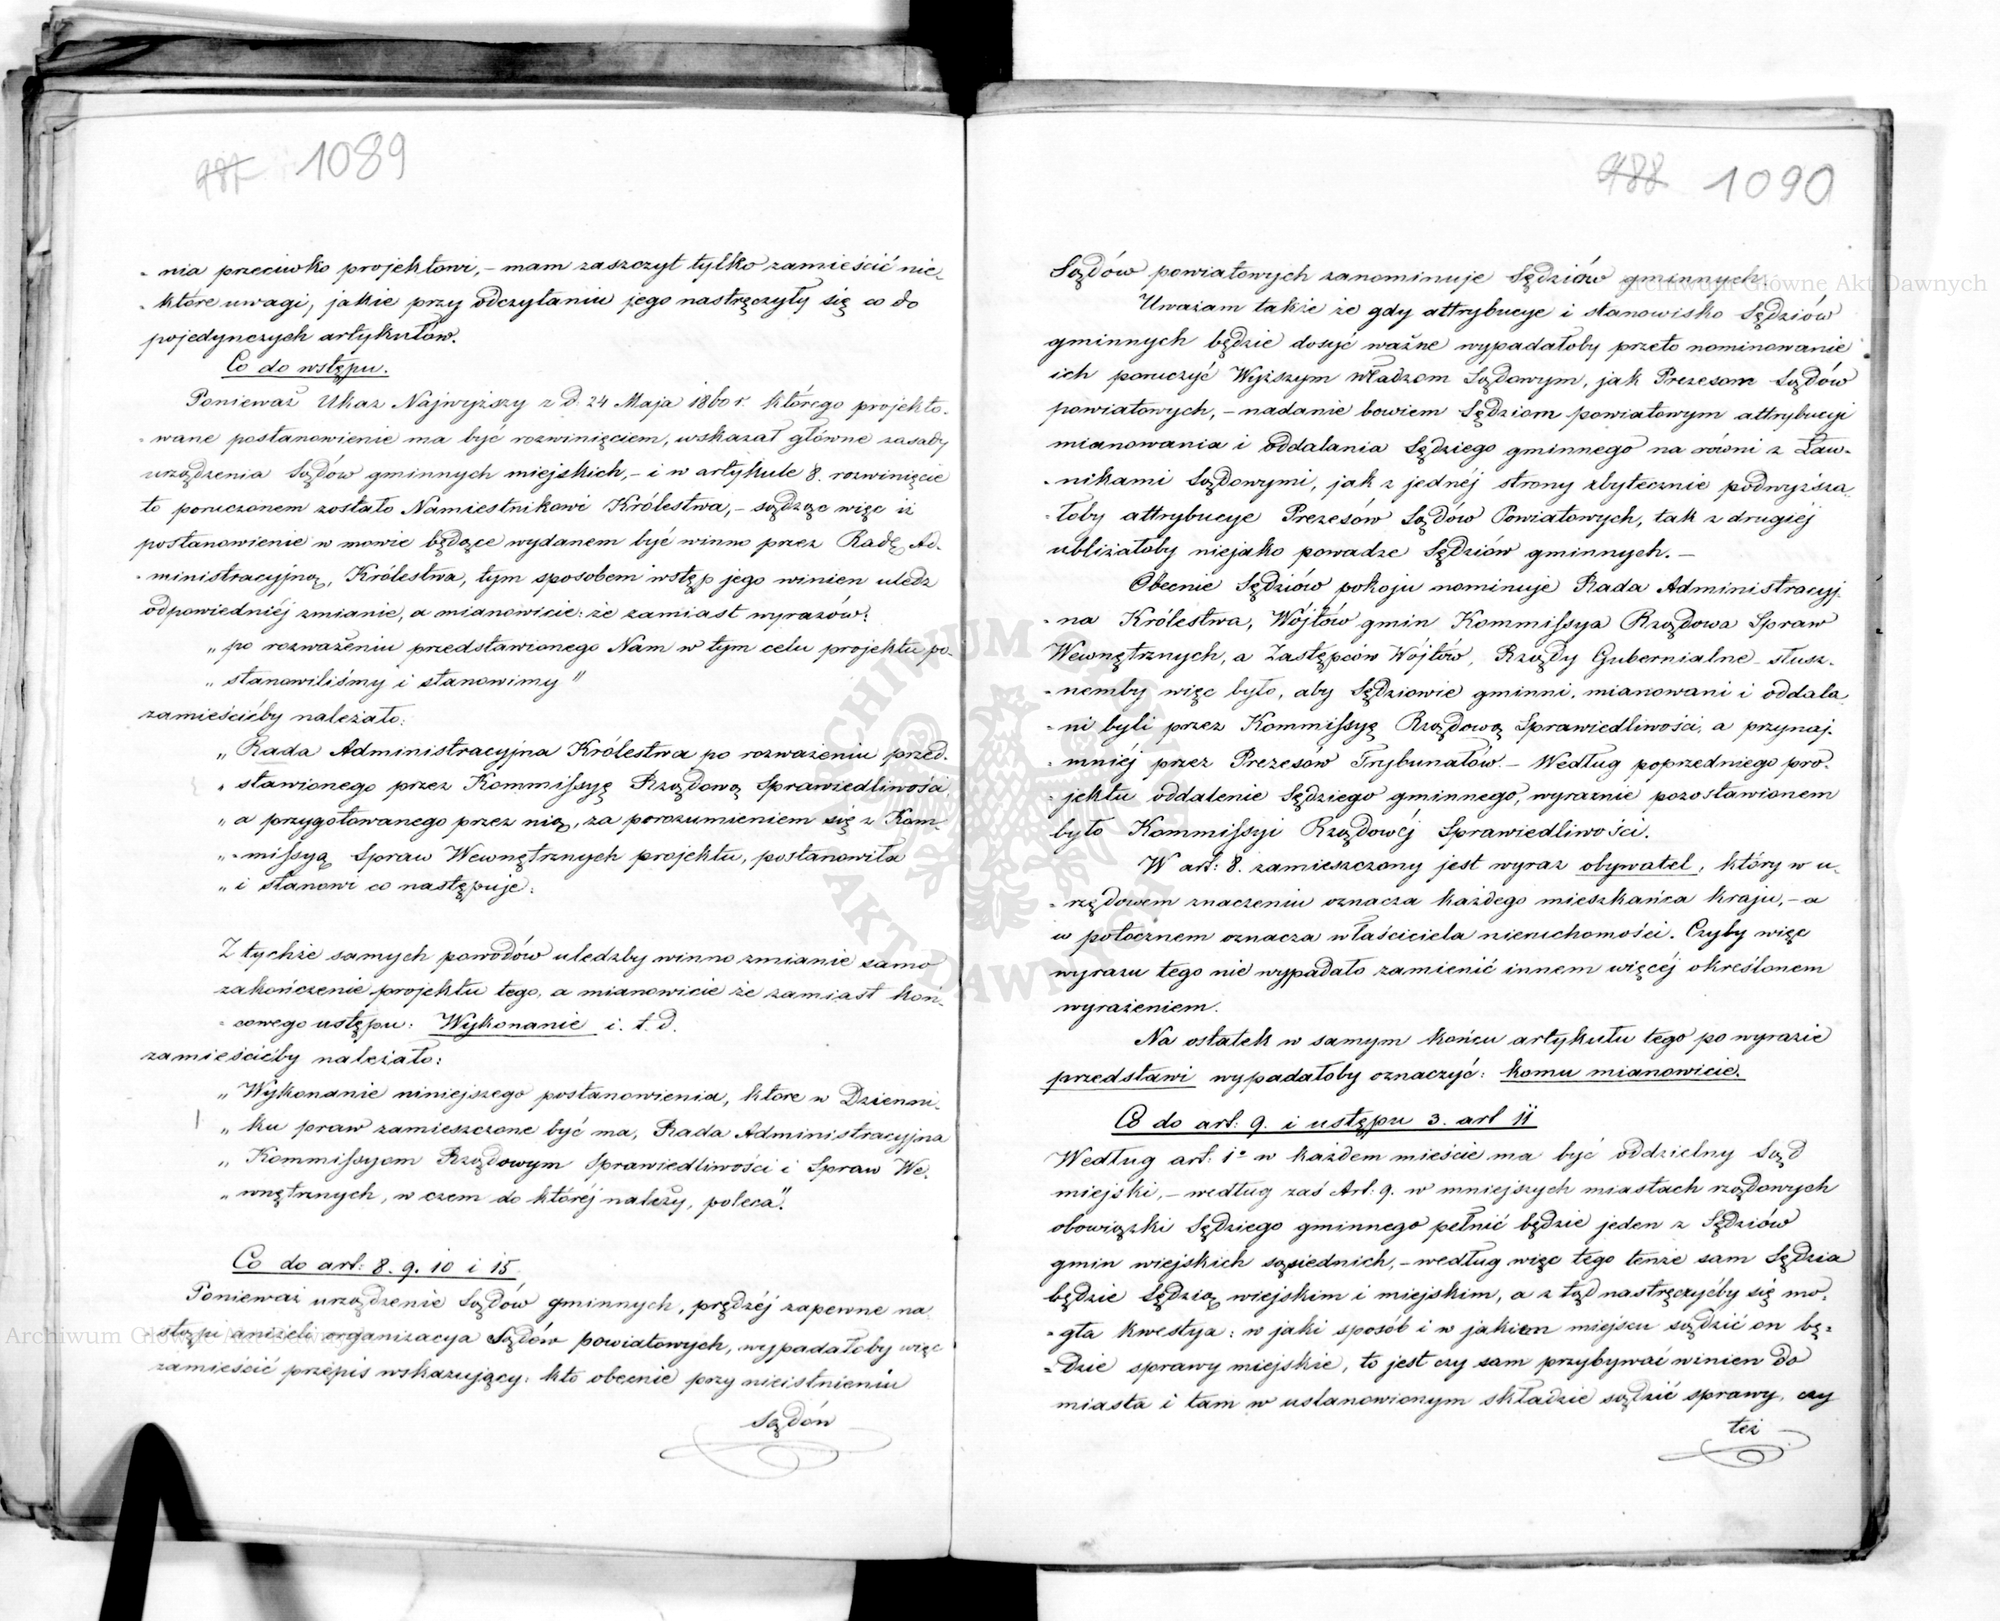 487 1089
-nia przeciwko projektowi, – mam zaszczyt tylko zamieścić nie-
-które uwagi, jakie przy odczytaniu jego nastręczyły się co do
pojedynczych artykułów.
Co do wstępu.
Ponieważ Ukaz Najwyższy z d. 24 Maja 1860 r. którego projekto-
-wane postanowienie ma być rozwinięciem, wskazał główne zasady
urządzenia Sądów gminnych miejskich, – i w artykule 8. rozwinięcie
to poruczonem zostało Namiestnikowi Królestwa, – sądząc więc iż
postanowienie w mowie będące wydanem być winno przez Radę Ad-
-ministracyjną Królestwa, tym sposobem wstęp jego winien uledz
odpowiedniéj zmianie, a mianowicie: że zamiast wyrazów:
„po rozważeniu przedstawionego Nam w tym celu projektu po-
„stanowiliśmy i stanowimy"
zamieścićby należało:
„Rada Administracyjna Królestwa po rozważeniu przed-
„stawionego przez Kommissyę Rządową Sprawiedliwości
„a przygotowanego przez nią, za porozumieniem się z Kom-
„-missyą Spraw Wewnętrznych projektu, postanowiła
„i stanowi co następuje:
Z tychże samych powodów uledzby winno zmianie samo
zakończenie projektu tego, a mianowicie że zamiast koń-
-cowego ustępu: Wykonanie i. t. d.
zamieścićby należało:
„Wykonanie niniejszego postanowienia, które w Dzienni-
„ku praw zamieszczone być ma, Rada Administracyjna
„Kommissyom Rządowym Sprawiedliwości i Spraw We-
„wnętrznych, w czem do któréj należy, poleca".
Co do art: 8. 9. 10 i 15.
Ponieważ urządzenie Sądów gminnych, prędzéj zapewne na-
stąpi aniżeli organizacya Sądów powiatowych, wypadałoby więc
zamieścić przepis wskazujący: kto obecnie przy nieistnieniu
Sądów
488 1090
Sądów powiatowych zanominuje Sędziów gminnych.
Uważam także że gdy attrybucye i stanowisko Sędziów
gminnych będzie dosyć ważne wypadałoby przeto nominowanie
ich poruczyć Wyższym władzom Sądowym, jak Prezesom Sądów
powiatowych, – nadanie bowiem Sędziom powiatowym attrybucyi
mianowania i oddalania Sędziego gminnego na równi z Ław-
-nikami Sądowymi, jak z jednéj strony zbytecznie podwyższa-
-łoby attrybucye Prezesów Sądów Powiatowych, tak z drugiéj
ubliżałoby niejako powadze Sędziów gminnych. –
Obecnie Sędziów pokoju nominuje Rada Administracyj-
-na Królestwa, Wójtów gmin Kommissya Rządowa Spraw
Wewnętrznych, a Zastępców Wójtów, Rządy Gubernialne – słusz-
-nemby więc było, aby Sędziowie gminni, mianowani i oddala-
-ni byli przez Kommissyę Rządową Sprawiedliwości, a przynaj-
-mniéj przez Prezesów Trybunałów. – Według poprzedniego pro-
-jektu oddalenie Sędziego gminnego, wyraźnie pozostawionem
było Kommissyi Rządowéj Sprawiedliwości.
W art: 8. zamieszczony jest wyraz obywatel, który w u-
-rzędowem znaczeniu oznacza każdego mieszkańca kraju, – a
w potocznem oznacza właściciela nieruchomości. Czyby więc
wyrazu tego nie wypadało zamienić innem więcéj określonem
wyrażeniem.
Na ostatek w samym końcu artykułu tego po wyrazie
przedstawi wypadałoby oznaczyć: komu mianowicie.
Co do art: 9. i ustępu 3. art 11
Według art: 1º w każdem mieście ma być oddzielny Sąd
miejski, – według zaś Art: 9. w mniejszych miastach rządowych
obowiązki Sędziego gminnego pełnić będzie jeden z Sędziów
gmin wiejskich sąsiednich, – według więc tego tenże sam Sędzia
będzie Sędzią wiejskim i miejskim, a z tąd nastręczyćby się mo-
-gła kwestya: w jaki sposób i w jakiem miejscu sądzić on bę-
-dzie sprawy miejskie, to jest czy sam przybywać winien do
miasta i tam w ustanowionym składzie sądzić sprawy, czy
też
Archiwum Główne Akt Dawnych
ARCHIWUM GŁÓWNE
AKT DAWNYCH